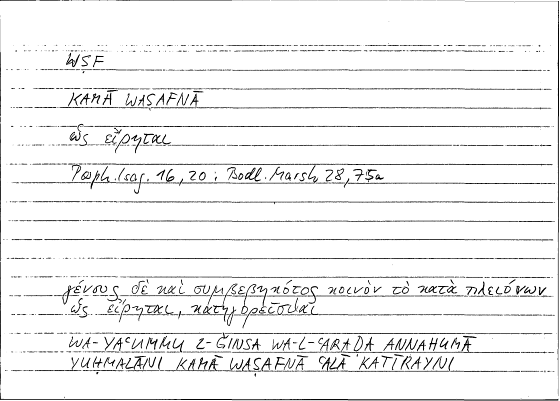 WṢF
KAMĀ WAṢAFNĀ
ὡς εἴρηται
Porph. Isag. 16, 20 : Bodl. Marsh 28, 75a
γένους δὲ καὶ συμβεβηκότος κοινὸν τὸ κατὰ πλειόνων
ὡς εἴρηται, κατηγορεῖσθαι
WA-YAʿUMMU L-ǦINSA WA-L-ʿARAḌA ANNAHUMĀ
YUḤMALĀNI KAMĀ WAṢAFNĀ ʿALĀ KAṮĪRAYNI